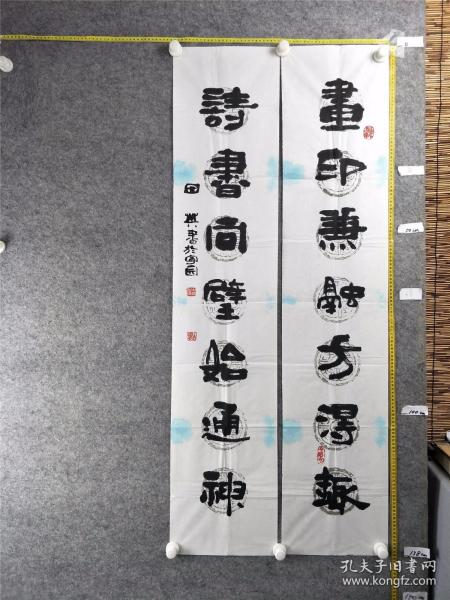 畫印兼融方得趣
詩書向壁始通神
孔夫子旧书网
www.kongfz.com